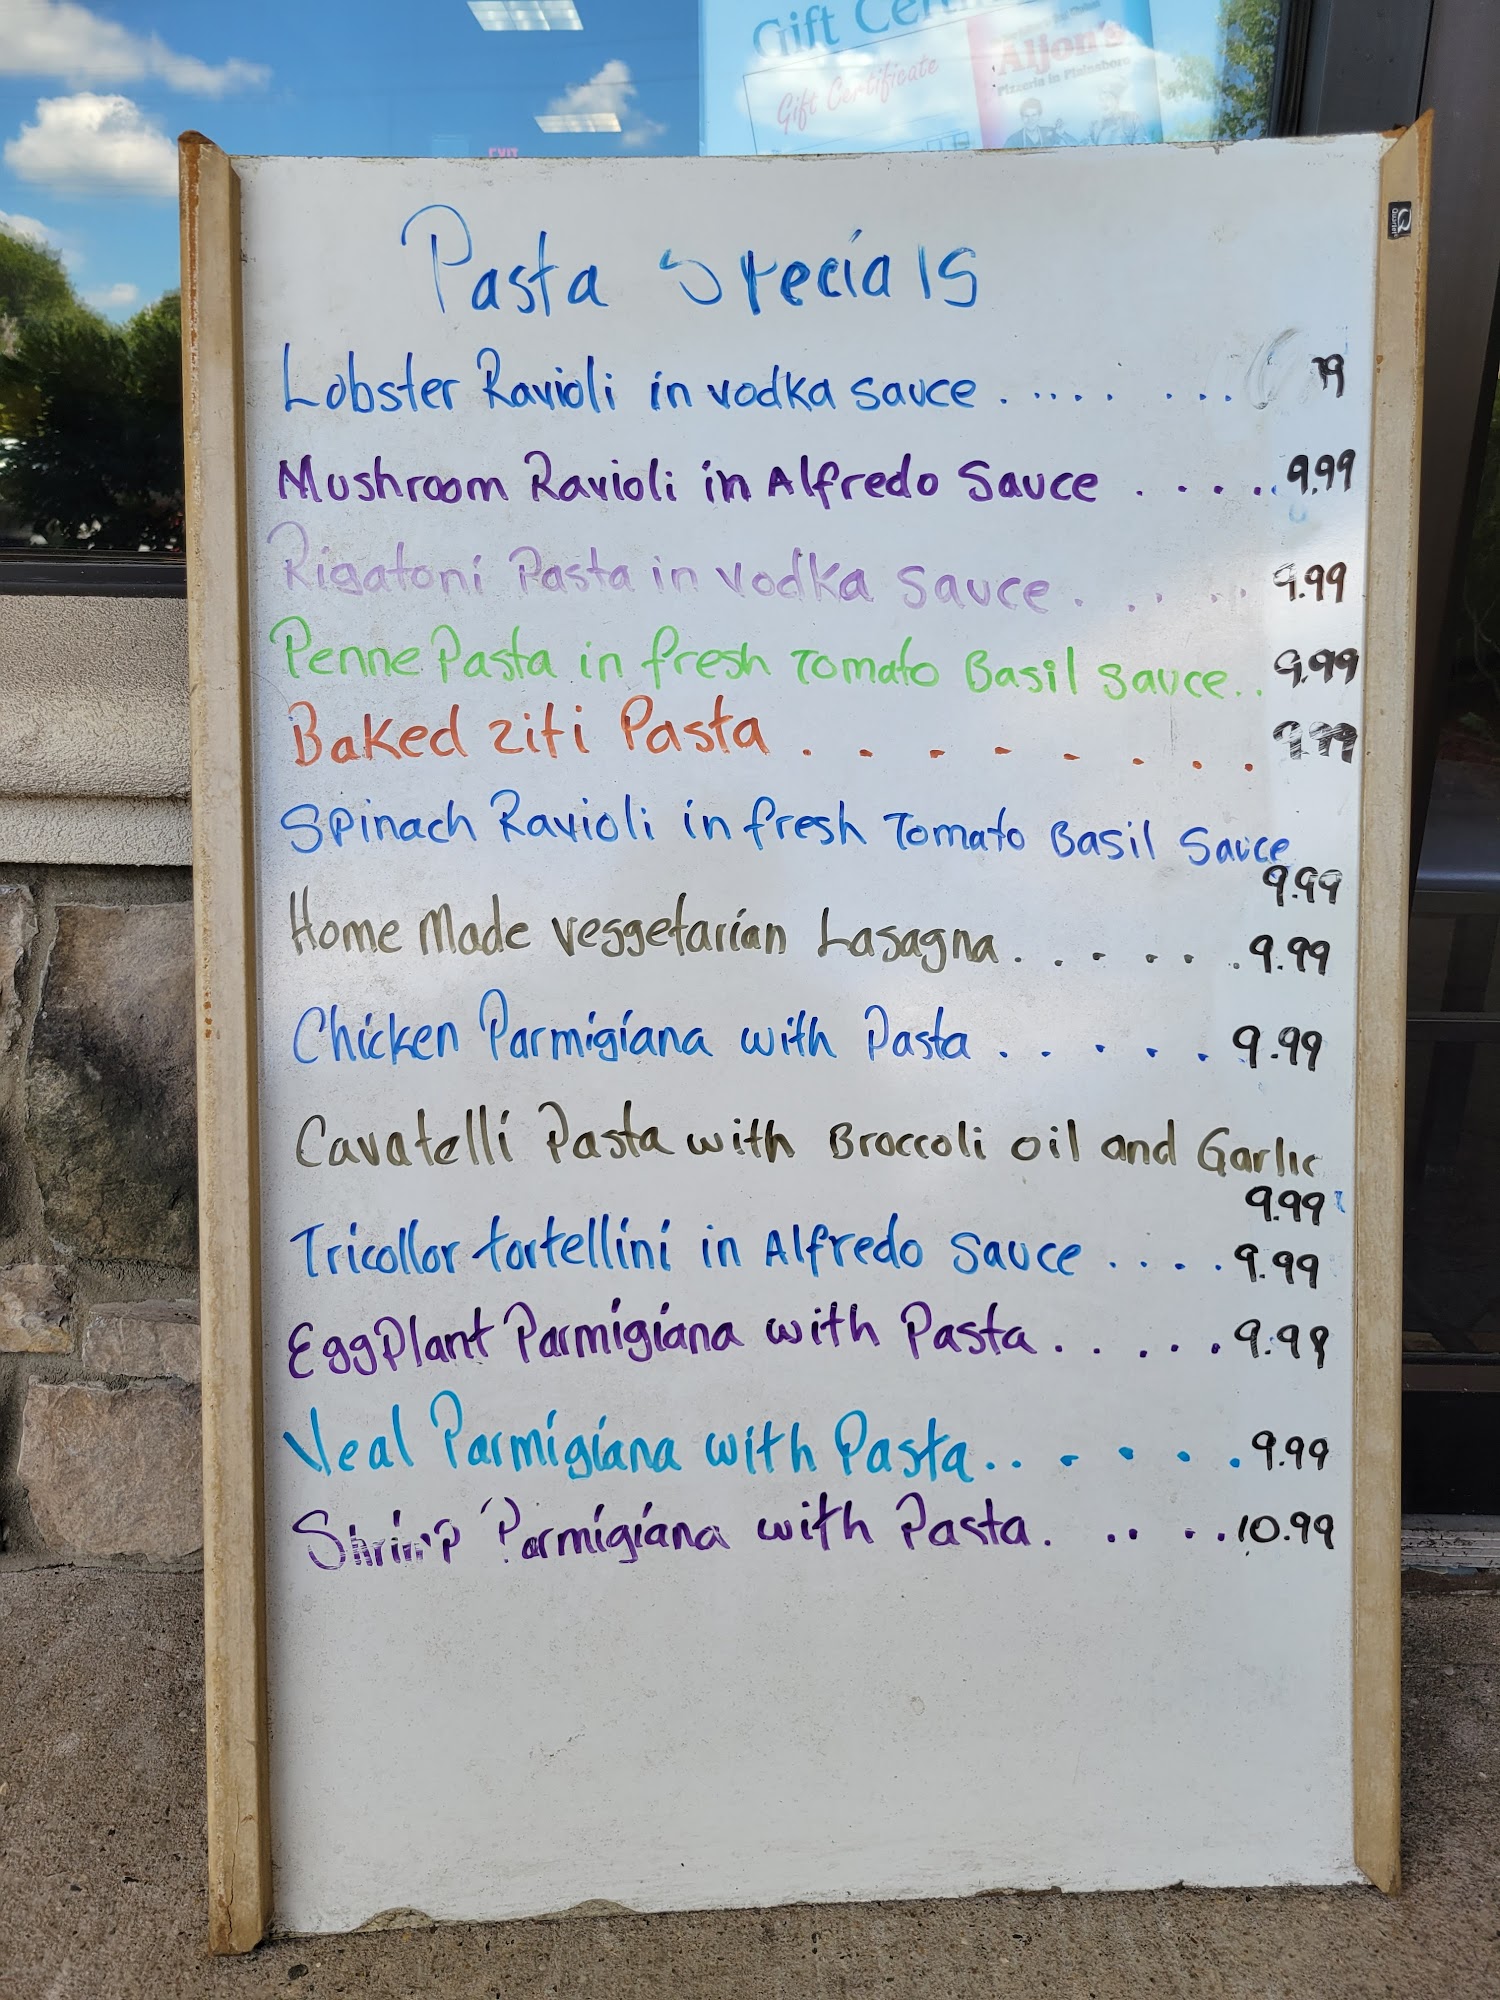 Gift
Gift Certificate
Aljon's
Pizzeria in Plainsboro
EXIT
Quartet
Pasta Specials
Lobster Ravioli in vodka sauce . . . . . . . . .
Mushroom Ravioli in Alfredo Sauce . . . . . 9.99
Rigatoni Pasta in vodka sauce . . . . . 9.99
Penne Pasta in fresh Tomato Basil sauce . . 9.99
Baked ziti Pasta . . . . . . . . 9.99
Spinach Ravioli in fresh Tomato Basil Sauce
9.99
Home Made veggetarian Lasagna . . . . . . 9.99
Chicken Parmigiana with Pasta . . . . . 9.99
Cavatelli Pasta with Broccoli oil and Garlic
9.99
Tricollor tortellini in Alfredo Sauce . . . . 9.99
EggPlant Parmigiana with Pasta . . . . . 9.99
Veal Parmigiana with Pasta . . . . . . 9.99
Shrimp Parmigiana with Pasta . . . . . 10.99